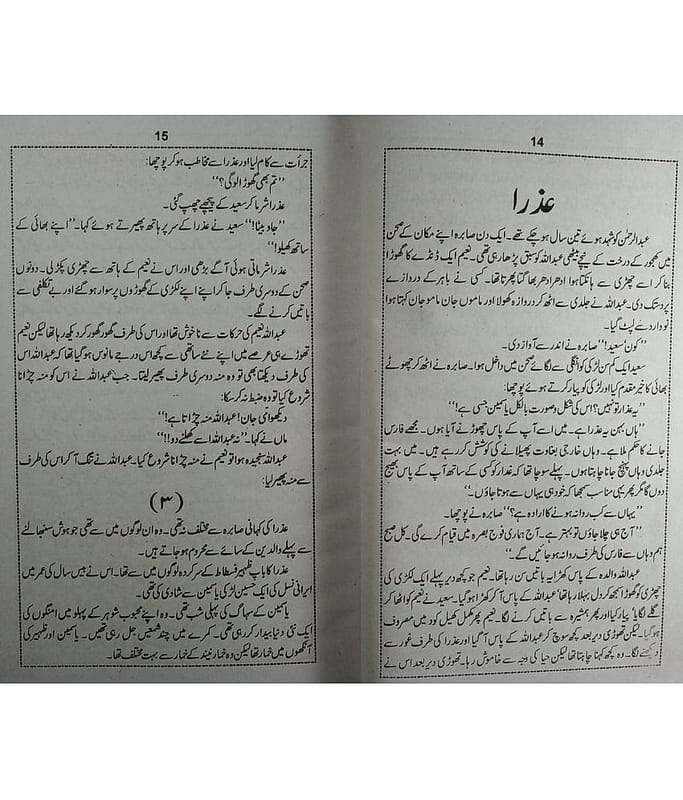 14
عذرا
عبدالرحمٰن کو شہید ہوئے تین سال ہو چکے تھے۔ ایک دن صابرہ اپنے مکان کے صحن
میں کھجور کے درخت کے نیچے بیٹھی عبداللہ کو سبق پڑھا رہی تھی۔ نعیم ایک ڈنڈے کا گھوڑا
بنا کر اسے چھڑی سے ہانکتا ہوا ادھر ادھر بھاگتا پھرتا تھا۔ کسی نے باہر کے دروازے
پر دستک دی۔ عبداللہ نے جلدی سے اٹھ کر دروازہ کھولا اور ماموں جان ماموں جان کہتا ہوا
نووارد سے لپٹ گیا۔
”کون سعید!“ صابرہ نے اندر سے آواز دی۔
سعید ایک کم سن لڑکی کو انگلی سے لگائے صحن میں داخل ہوا۔ صابرہ نے اٹھ کر چھوٹے
بھائی کا خیر مقدم کیا اور لڑکی کو پیار کرتے ہوئے پوچھا:
”یہ عذرا تو نہیں؟ اس کی شکل وصورت بالکل یاسمین جیسی ہے!“
”ہاں بہن یہ عذرا ہے۔ میں اسے آپ کے پاس چھوڑنے آیا ہوں۔ مجھے فارس
جانے کا حکم ملا ہے۔ وہاں خارجی بغاوت پھیلانے کی کوشش کر رہے ہیں۔ میں بہت
جلدی وہاں پہنچ جانا چاہتا ہوں۔ پہلے سوچا تھا کہ عذرا کو کسی کے ساتھ آپ کے پاس بھیج
دوں گا مگر پھر یہی مناسب سمجھا کہ خود ہی یہاں سے ہوتا جاؤں۔“
”یہاں سے کب روانہ ہونے کا ارادہ ہے؟“ صابرہ نے پوچھا۔
”آج ہی چلا جاؤں تو بہتر ہے۔ آج ہماری فوج بصرہ میں قیام کرے گی۔ کل صبح
ہم وہاں سے فارس کی طرف روانہ ہو جائیں گے۔“
عبداللہ والدہ کے پاس کھڑا یہ باتیں سن رہا تھا۔ نعیم جو کچھ دیر پہلے ایک لکڑی کی
چھڑی کو گھوڑا سمجھ کر دل بہلا رہا تھا عبداللہ کے پاس آ کھڑا ہوا۔ سعید نے نعیم کو اٹھا کر
گلے لگایا‘ پیار کیا اور پھر ہمشیرہ سے باتیں کرنے لگا۔ نعیم پھر کھیل کود میں مصروف
ہو گیا۔ لیکن تھوڑی دیر بعد کچھ سوچ کر عبداللہ کے پاس آ گیا اور عذرا کی طرف غور سے
دیکھنے لگا۔ وہ کچھ کہنا چاہتا تھا لیکن حیا کی وجہ سے خاموش رہا۔ تھوڑی دیر بعد اس نے
15
جرأت سے کام لیا اور عذرا سے مخاطب ہو کر پوچھا:
”تم بھی گھوڑا لوگی؟“
عذرا شرما کر سعید کے پیچھے چھپ گئی۔
”جاؤ بیٹا!“ سعید نے عذرا کے سر پر ہاتھ پھیرتے ہوئے کہا۔ ”اپنے بھائی کے
ساتھ کھیلو!“
عذرا شرماتی ہوئی آگے بڑھی اور اس نے نعیم کے ہاتھ سے چھڑی پکڑ لی۔ دونوں
صحن کے دوسری طرف جا کر اپنے اپنے لکڑی کے گھوڑوں پر سوار ہو گئے اور بے تکلفی سے
باتیں کرنے لگے۔
عبداللہ نعیم کی حرکات سے ناخوش تھا اور اس کی طرف گھور گھور کر دیکھ رہا تھا لیکن نعیم
تھوڑے ہی عرصے میں اپنے نئے ساتھی سے کچھ اس درجے مانوس ہو گیا تھا کہ عبداللہ اس
کی طرف دیکھتا بھی تو وہ منہ دوسری طرف پھیر لیتا۔ جب عبداللہ نے اس کو منہ چڑانا
شروع کیا تو وہ ضبط نہ کر سکا:
دیکھو امی جان! عبداللہ منہ چڑاتا ہے!“
ماں نے کہا۔ ”نہ عبداللہ اسے کھیلنے دو!!“
عبداللہ سنجیدہ ہوا تو نعیم نے منہ چڑانا شروع کیا۔ عبداللہ نے تنگ آ کر اس کی طرف
سے منہ پھیر لیا:
(۳)
عذرا کی کہانی صابرہ سے مختلف نہ تھی۔ وہ ان لوگوں میں سے تھی جو ہوش سنبھالنے
سے پہلے والدین کے سائے سے محروم ہو جاتے ہیں۔
عذرا کا باپ ظہیر فسطاط کے سرکردہ لوگوں میں سے تھا۔ اس نے بیس سال کی عمر میں
ایرانی نسل کی ایک حسین لڑکی یاسمین سے شادی کی تھی۔
یاسمین کے سہاگ کی پہلی شب تھی۔ وہ اپنے محبوب شوہر کے پہلو میں امنگوں کی
ایک نئی دنیا بیدار کر رہی تھی۔ کمرے میں چند شمعیں جل رہی تھیں۔ یاسمین اور ظہیر کی
آنکھوں میں خمار تھا لیکن وہ خمار نیند کے خمار سے بہت مختلف تھا۔